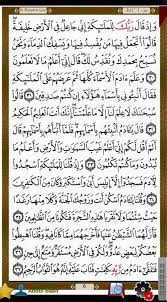 وَإِذْ قَالَ رَبُّكَ لِلْمَلَٰٓئِكَةِ إِنِّى جَاعِلٌ فِى ٱلْأَرْضِ خَلِيفَةً
قَالُوٓا۟ أَتَجْعَلُ فِيهَا مَن يُفْسِدُ فِيهَا وَيَسْفِكُ ٱلدِّمَآءَ وَنَحْنُ
نُسَبِّحُ بِحَمْدِكَ وَنُقَدِّسُ لَكَ قَالَ إِنِّىٓ أَعْلَمُ مَا لَا تَعْلَمُونَ
٣٠ وَعَلَّمَ ءَادَمَ ٱلْأَسْمَآءَ كُلَّهَا ثُمَّ عَرَضَهُمْ عَلَى ٱلْمَلَٰٓئِكَةِ
فَقَالَ أَنۢبِـُٔونِى بِأَسْمَآءِ هَٰٓؤُلَآءِ إِن كُنتُمْ صَٰدِقِينَ ٣١
قَالُوا۟ سُبْحَٰنَكَ لَا عِلْمَ لَنَآ إِلَّا مَا عَلَّمْتَنَآ إِنَّكَ أَنتَ ٱلْعَلِيمُ ٱلْحَكِيمُ
٣٢ قَالَ يَٰٓـَٔادَمُ أَنۢبِئْهُم بِأَسْمَآئِهِمْ فَلَمَّآ أَنۢبَأَهُم بِأَسْمَآئِهِمْ
قَالَ أَلَمْ أَقُل لَّكُمْ إِنِّىٓ أَعْلَمُ غَيْبَ ٱلسَّمَٰوَٰتِ وَٱلْأَرْضِ وَأَعْلَمُ مَا
تُبْدُونَ وَمَا كُنتُمْ تَكْتُمُونَ ٣٣ وَإِذْ قُلْنَا لِلْمَلَٰٓئِكَةِ ٱسْجُدُوا۟
لِـَٔادَمَ فَسَجَدُوٓا۟ إِلَّآ إِبْلِيسَ أَبَىٰ وَٱسْتَكْبَرَ وَكَانَ مِنَ ٱلْكَٰفِرِينَ
٣٤ وَقُلْنَا يَٰٓـَٔادَمُ ٱسْكُنْ أَنتَ وَزَوْجُكَ ٱلْجَنَّةَ وَكُلَا مِنْهَا رَغَدًا
حَيْثُ شِئْتُمَا وَلَا تَقْرَبَا هَٰذِهِ ٱلشَّجَرَةَ فَتَكُونَا مِنَ ٱلظَّٰلِمِينَ ٣٥
فَأَزَلَّهُمَا ٱلشَّيْطَٰنُ عَنْهَا فَأَخْرَجَهُمَا مِمَّا كَانَا فِيهِ وَقُلْنَا ٱهْبِطُوا۟
بَعْضُكُمْ لِبَعْضٍ عَدُوٌّ وَلَكُمْ فِى ٱلْأَرْضِ مُسْتَقَرٌّ وَمَتَٰعٌ إِلَىٰ حِينٍ ٣٦
فَتَلَقَّىٰٓ ءَادَمُ مِن رَّبِّهِۦ كَلِمَٰتٍ فَتَابَ عَلَيْهِ إِنَّهُۥ هُوَ ٱلتَّوَّابُ ٱلرَّحِيمُ ٣٧
6
Abdul Basit